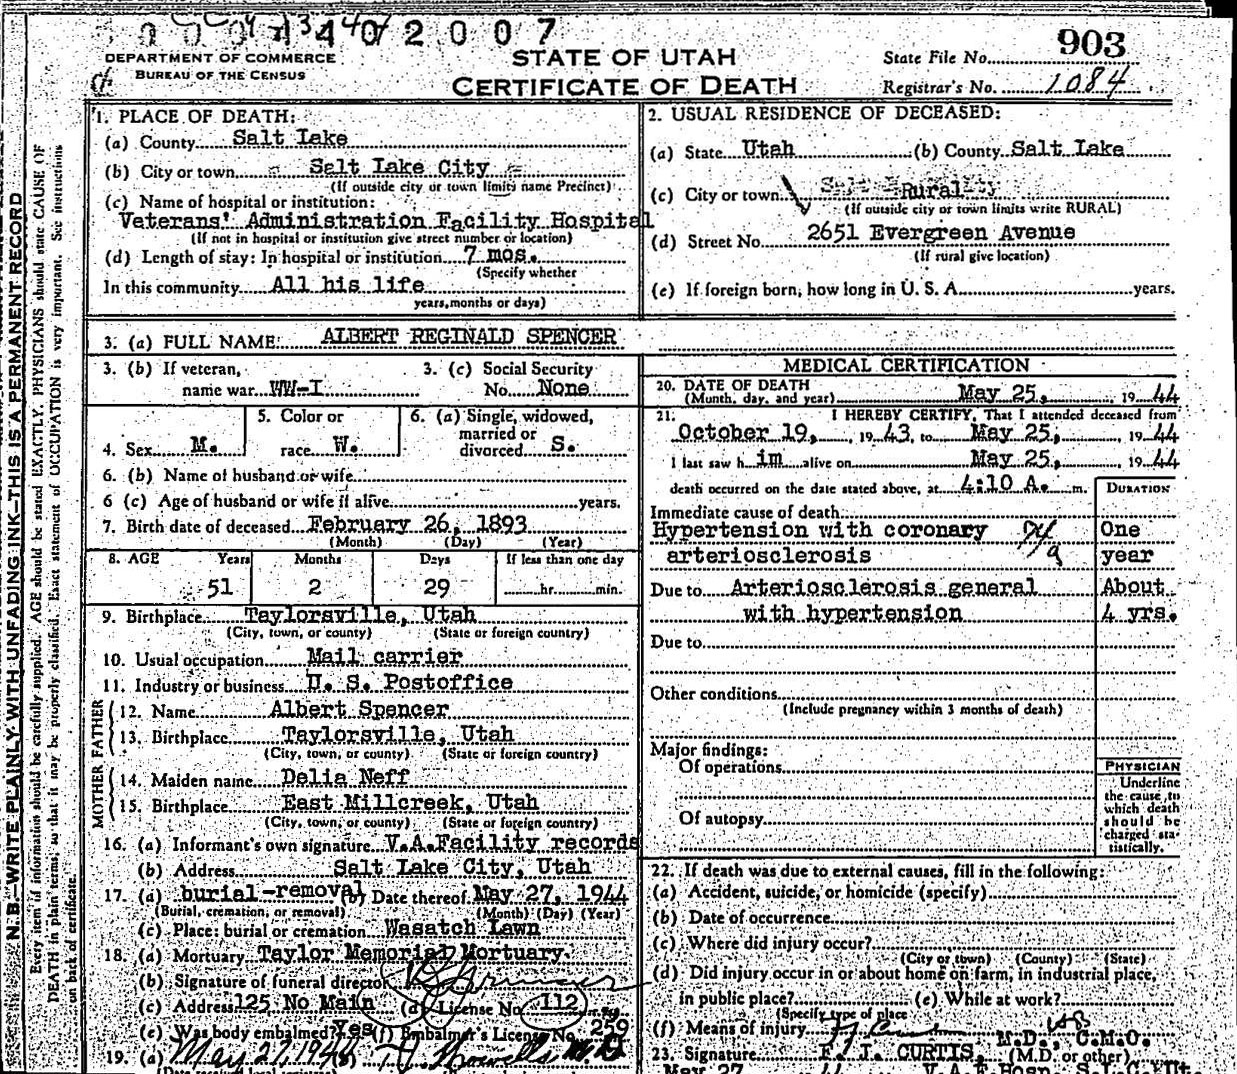 402007
DEPARTMENT OF COMMERCE
BUREAU OF THE CENSUS
STATE OF UTAH
CERTIFICATE OF DEATH
State File No. 903
Registrar's No. 1084
1. PLACE OF DEATH:
(a) County Salt Lake
(b) City or town Salt Lake City
(If outside city or town limits name Precinct)
(c) Name of hospital or institution:
Veterans' Administration Facility Hospital
(If not in hospital or institution give street number or location)
(d) Length of stay: In hospital or institution 7 mos.
(Specify whether
In this community All his life
years, months or days)
2. USUAL RESIDENCE OF DECEASED:
(a) State Utah (b) County Salt Lake
(c) City or town Rural
(If outside city or town limits write RURAL)
(d) Street No. 2651 Evergreen Avenue
(If rural give location)
(e) If foreign born, how long in U. S. A. years.
3. (a) FULL NAME ALBERT REGINALD SPENCER
3. (b) If veteran,
name war WW-I
3. (c) Social Security
No. None
4. Sex M.
5. Color or
race W.
6. (a) Single, widowed,
married or
divorced S.
6. (b) Name of husband or wife
6 (c) Age of husband or wife if alive years.
7. Birth date of deceased February 26, 1893
(Month) (Day) (Year)
8. AGE Years Months Days If less than one day
51 2 29 hr. min.
9. Birthplace Taylorsville, Utah
(City, town, or county) (State or foreign country)
10. Usual occupation Mail carrier
11. Industry or business U. S. Postoffice
FATHER
12. Name Albert Spencer
13. Birthplace Taylorsville, Utah
(City, town, or county) (State or foreign country)
MOTHER
14. Maiden name Delia Neff
15. Birthplace East Millcreek, Utah
(City, town, or county) (State or foreign country)
16. (a) Informant's own signature V.A.Facility records
(b) Address Salt Lake City, Utah
17. (a) burial-removal (b) Date thereof May 27, 1944
(Burial, cremation, or removal) (Month) (Day) (Year)
(c) Place: burial or cremation Wasatch Lawn
18. (a) Mortuary Taylor Memorial Mortuary.
(b) Signature of funeral director
(c) Address 125 No Main (d) License No. 112
(e) Was body embalmed? Yes (f) Embalmer's License No. 259
19. (a) May 27, 1944 (b)
MEDICAL CERTIFICATION
20. DATE OF DEATH
(Month, day, and year) May 25, 1944
21. I HEREBY CERTIFY, That I attended deceased from
October 19, 1943, to May 25, 1944
I last saw him alive on May 25, 1944
death occurred on the date stated above, at 4:10 A. m.
DURATION
Immediate cause of death
Hypertension with coronary One
arteriosclerosis year
Due to Arteriosclerosis general About
with hypertension 4 yrs.
Due to
Other conditions
(Include pregnancy within 3 months of death)
Major findings:
Of operations
Of autopsy
PHYSICIAN
Underline
the cause to
which death
should be
charged sta-
tistically.
22. If death was due to external causes, fill in the following:
(a) Accident, suicide, or homicide (specify)
(b) Date of occurrence
(c) Where did injury occur?
(City or town) (County) (State)
(d) Did injury occur in or about home on farm, in industrial place,
in public place? (e) While at work?
(Specify type of place
(f) Means of injury M.D., C.M.O.
23. Signature F. J. CURTIS, (M.D. or other)
May 27 44 V.A.F. Hosp. S.L.C. Ut.
N.B.—WRITE PLAINLY WITH UNFADING INK—THIS IS A PERMANENT RECORD
Every item of information should be carefully supplied. AGE should be stated EXACTLY. PHYSICIANS should state CAUSE OF
DEATH in plain terms, so that it may be properly classified. Exact statement of OCCUPATION is very important. See instructions
on back of certificate.